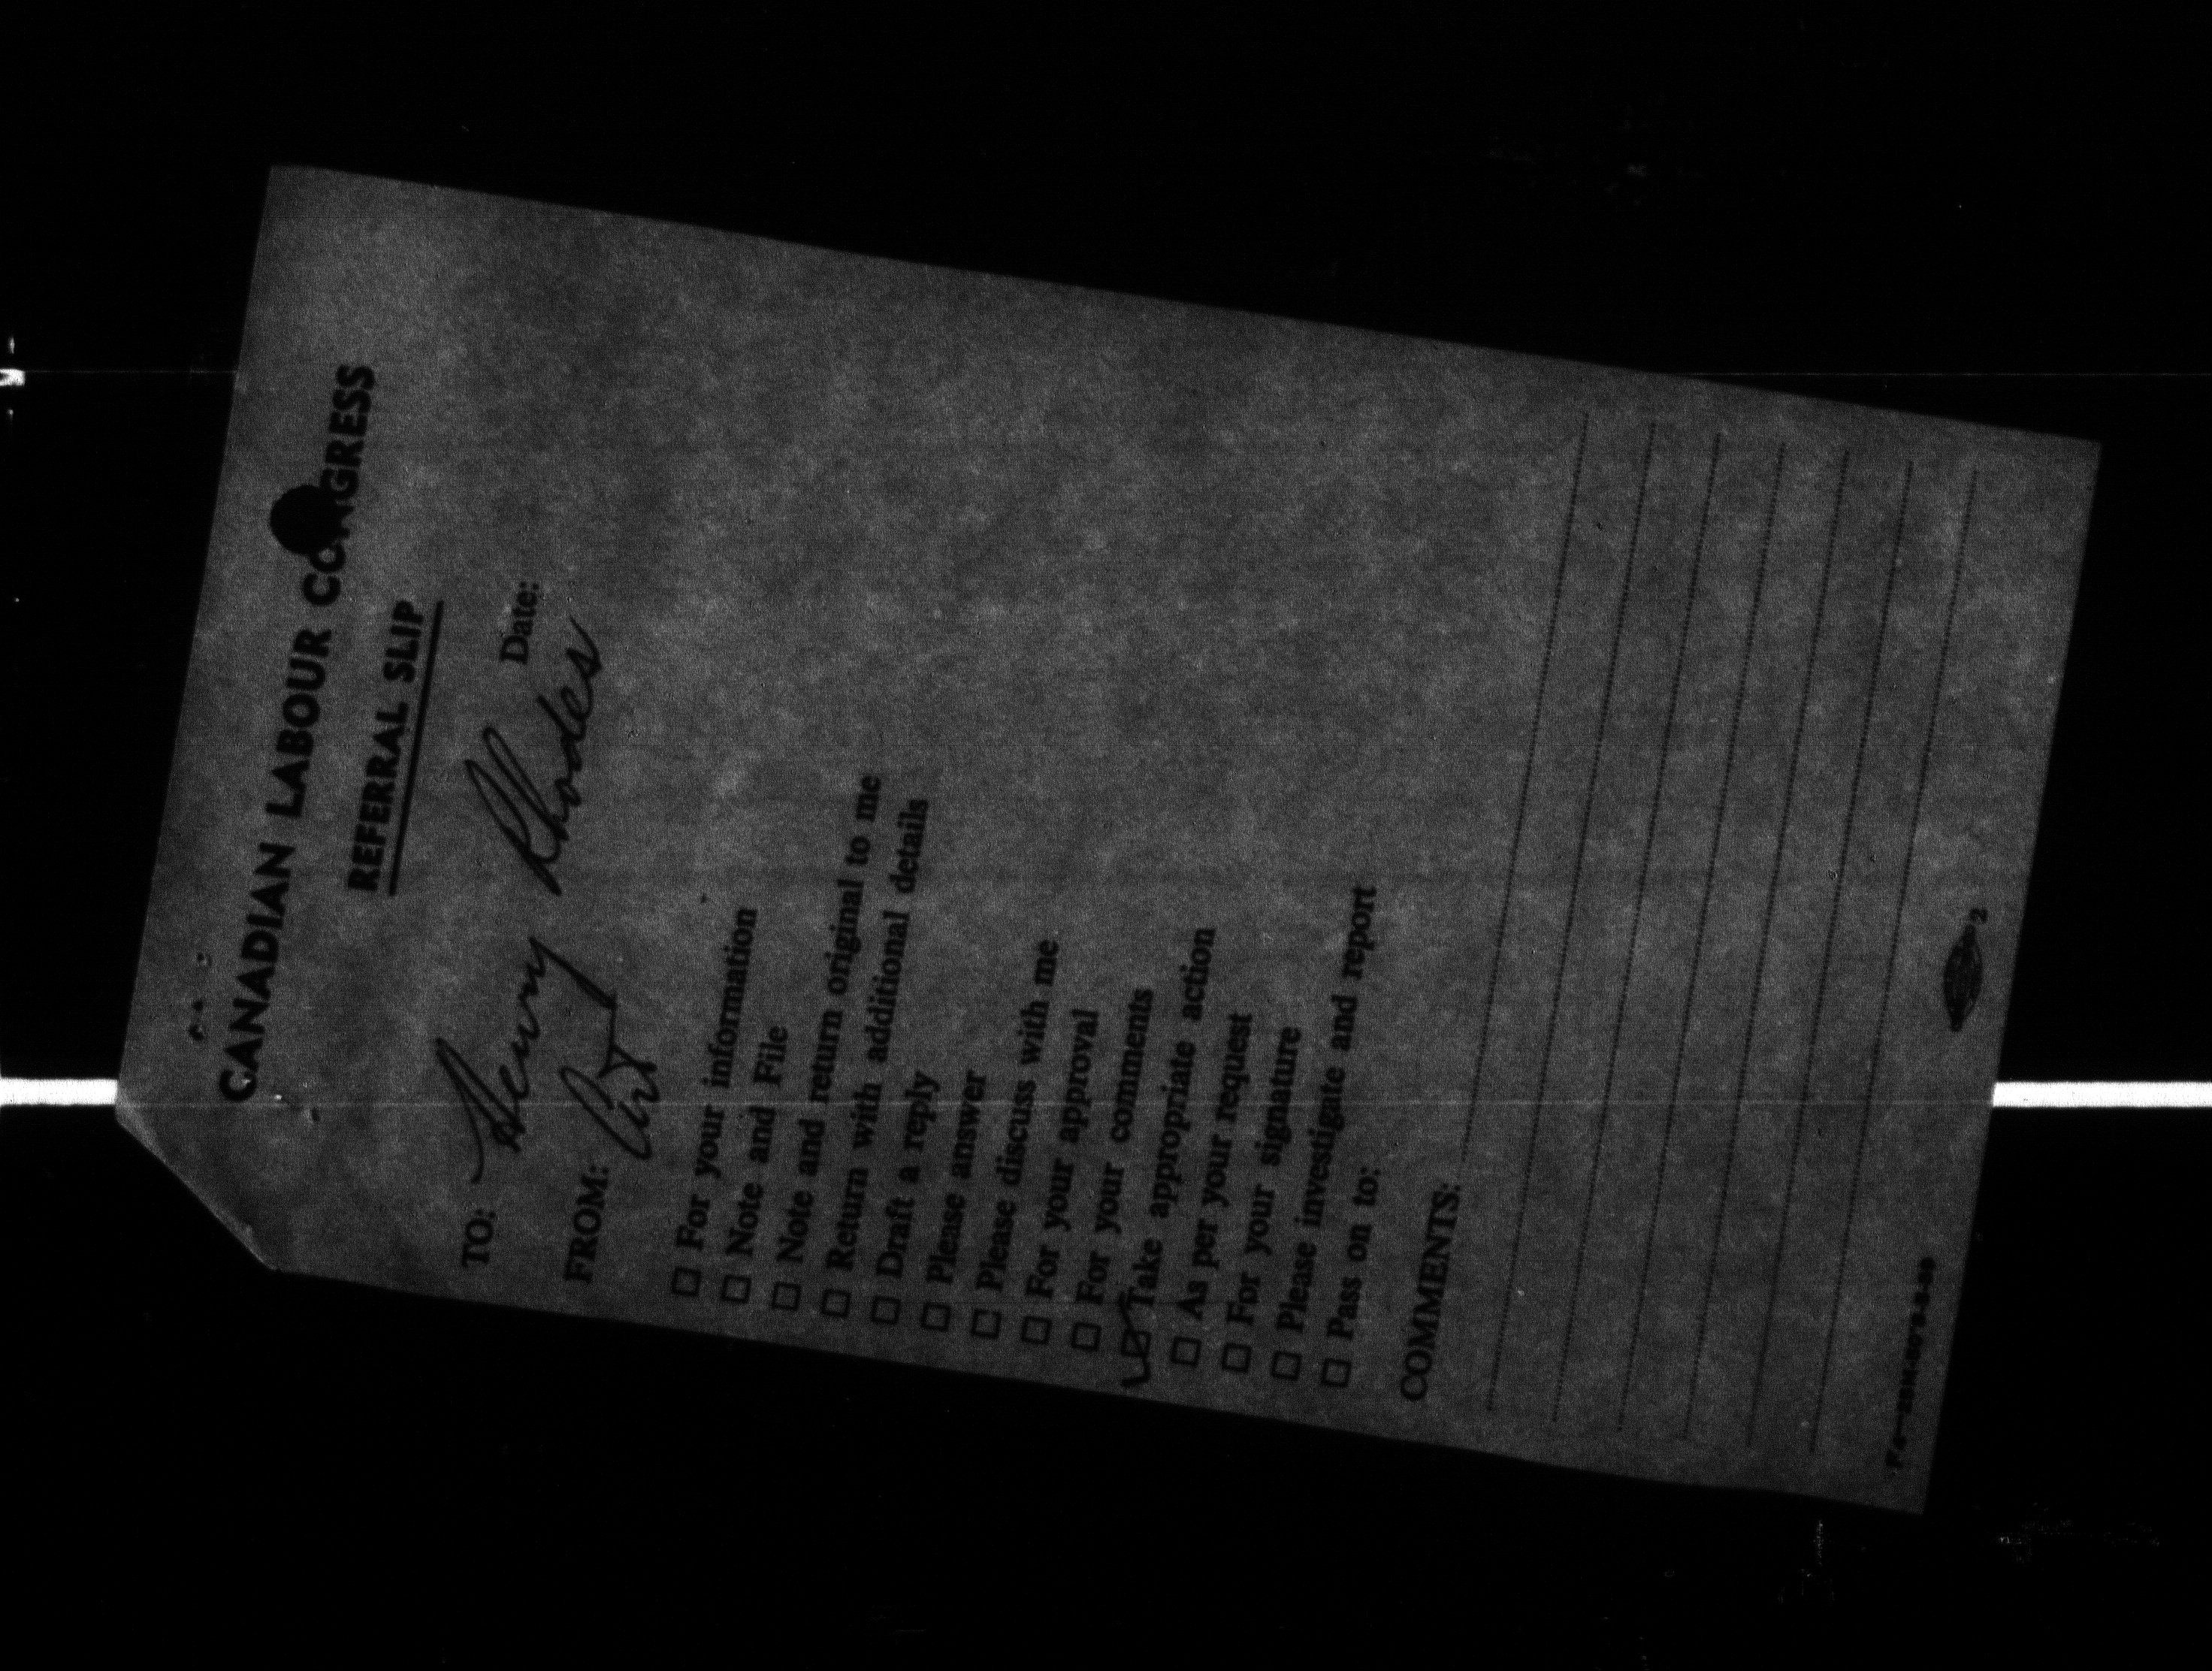 CANADIAN LABOUR CONGRESS
REFERRAL SLIP
TO: Henry Rhodes Date:
FROM: Art
☐ For your information
☐ Note and File
☐ Note and return original to me
☐ Return with additional details
☐ Draft a reply
☐ Please answer
☐ Please discuss with me
☐ For your approval
☐ For your comments
☑ Take appropriate action
☐ As per your request
☐ For your signature
☐ Please investigate and report
☐ Pass on to:
COMMENTS:
2